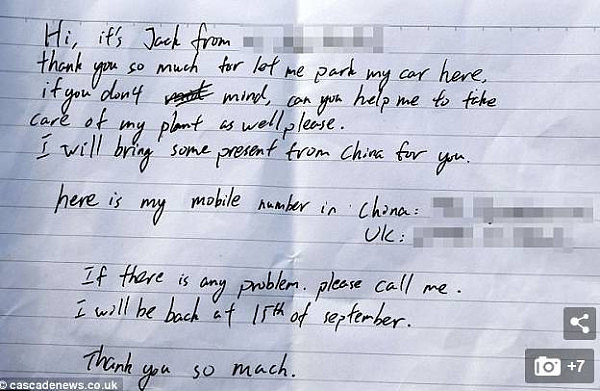 Hi, it's Jack from
thank you so much for let me park my car here,
if you don't mind, can you help me to take
care of my plant as well please.
I will bring some present from China for you.
here is my mobile number in China:
UK:
If there is any problem. please call me.
I will be back at 15th of september.
Thank you so much.
+7
© cascadenews.co.uk